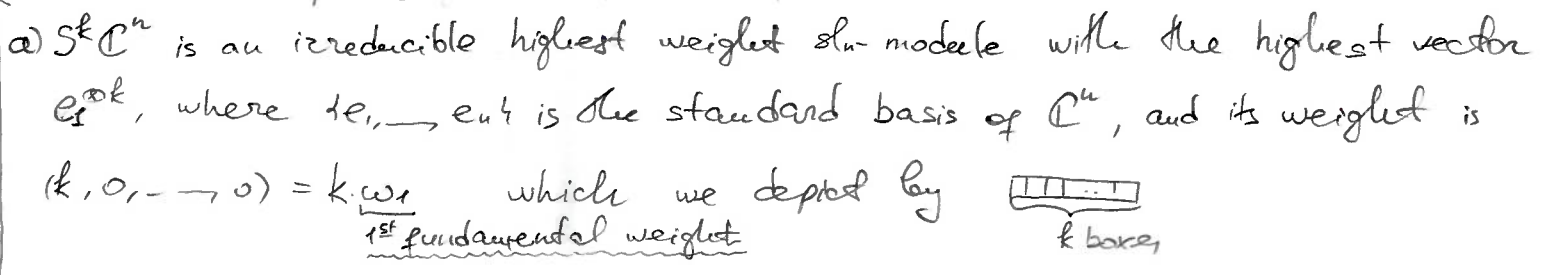 a) S^k ℂ^n is an irreducible highest weight sl_n-module with the highest vector
e_1^{⊗k}, where {e_1, …, e_n} is the standard basis of ℂ^n, and its weight is
(k, 0, …, 0) = k·ω_1 which we depict by
1st fundamental weight
k boxes